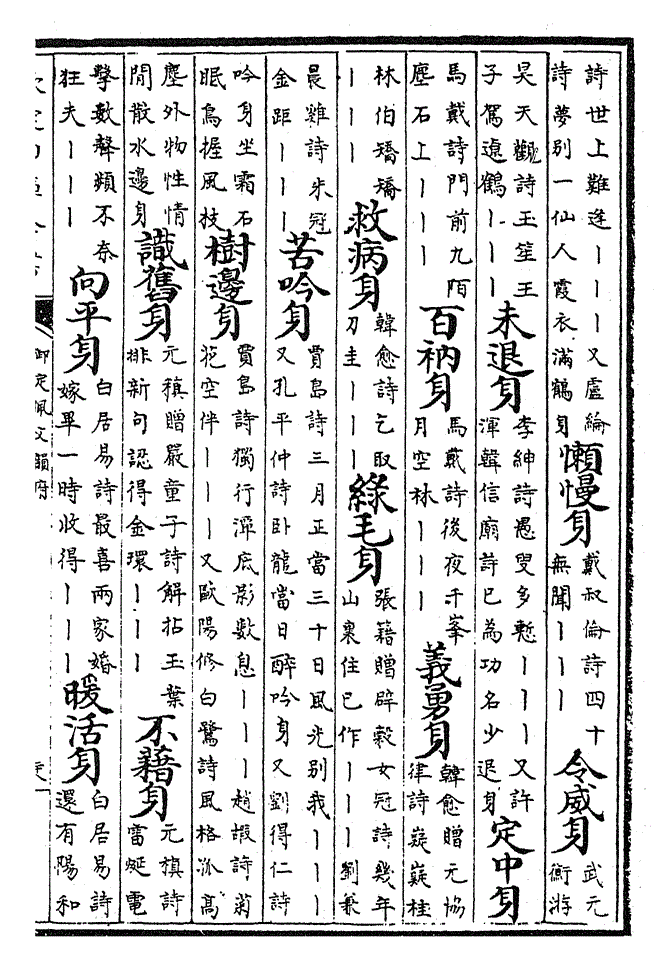 詩世上難逢丨丨丨又盧綸
詩夢別一仙人霞衣滿鶴身
懶慢身
戴叔倫詩四十
無聞丨丨丨
令威身
武元
衡游
昊天觀詩玉笙王
子駕遼鶴丨丨丨
未退身
李紳詩愚叟多慙丨丨丨又許
渾韓信廟詩已為功名少退身
定中身
馬戴詩門前九陌
塵石上丨丨丨
百衲身
馬戴詩後夜千峯
月空林丨丨丨
義勇身
韓愈贈元協
律詩嶷嶷桂
林伯矯矯
丨丨丨
救病身
韓愈詩乞取
刀圭丨丨丨
綠毛身
張籍贈辟穀女冠詩幾年
山裏住已作丨丨丨劉兼
晨雞詩朱冠
金距丨丨丨
苦吟身
賈島詩三月正當三十日風光別我丨丨丨
又孔平仲詩卧龍當日醉吟身又劉得仁詩
吟身坐霜石
眠鳥握風枝
樹邊身
賈島詩獨行潭底影數息丨丨丨趙嘏詩菊
花空伴丨丨丨又歐陽修白鷺詩風格孤高
塵外物性情
閒散水邊身
識舊身
元稹贈嚴童子詩解拈玉葉
排新句認得金環丨丨丨
不藉身
元稹詩
雷蜒電
擊數聲頻不奈
狂夫丨丨丨
向平身
白居易詩最喜兩家婚
嫁畢一時收得丨丨丨
暖活身
白居易詩
還有陽和
御定佩文韻府